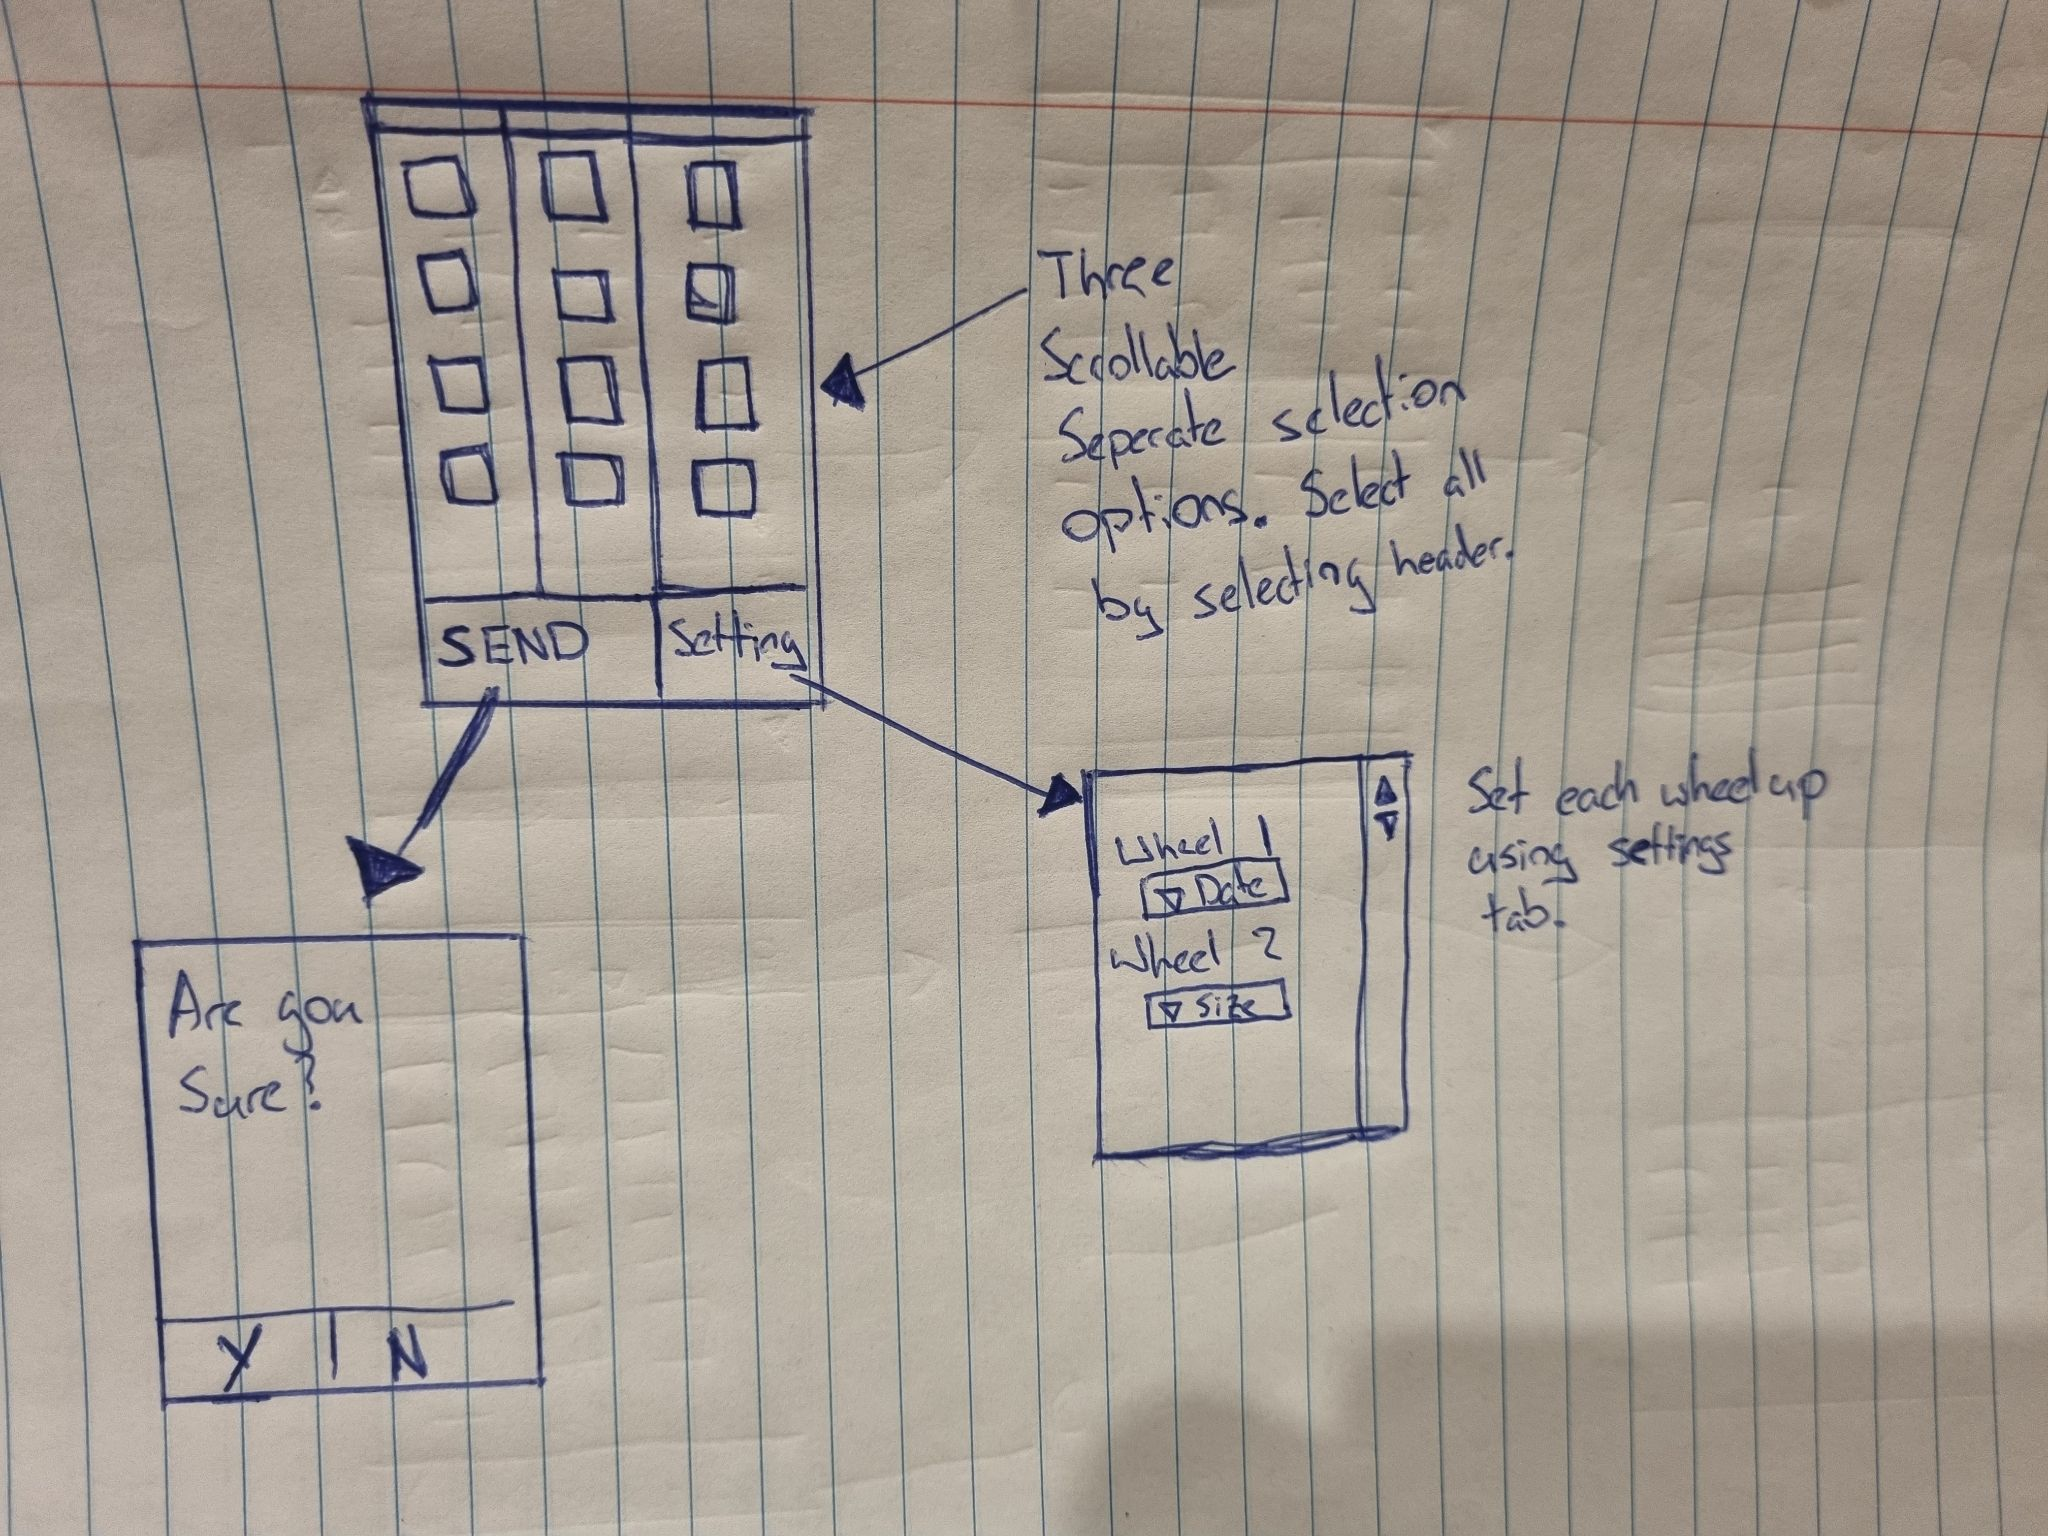 Three
Scrollable
Seperate selection
options. Select all
by selecting header.
SEND
Setting
Wheel 1
Date
Wheel 2
Size
Set each wheel up
using settings
tab.
Are you
Sure?
Y
N